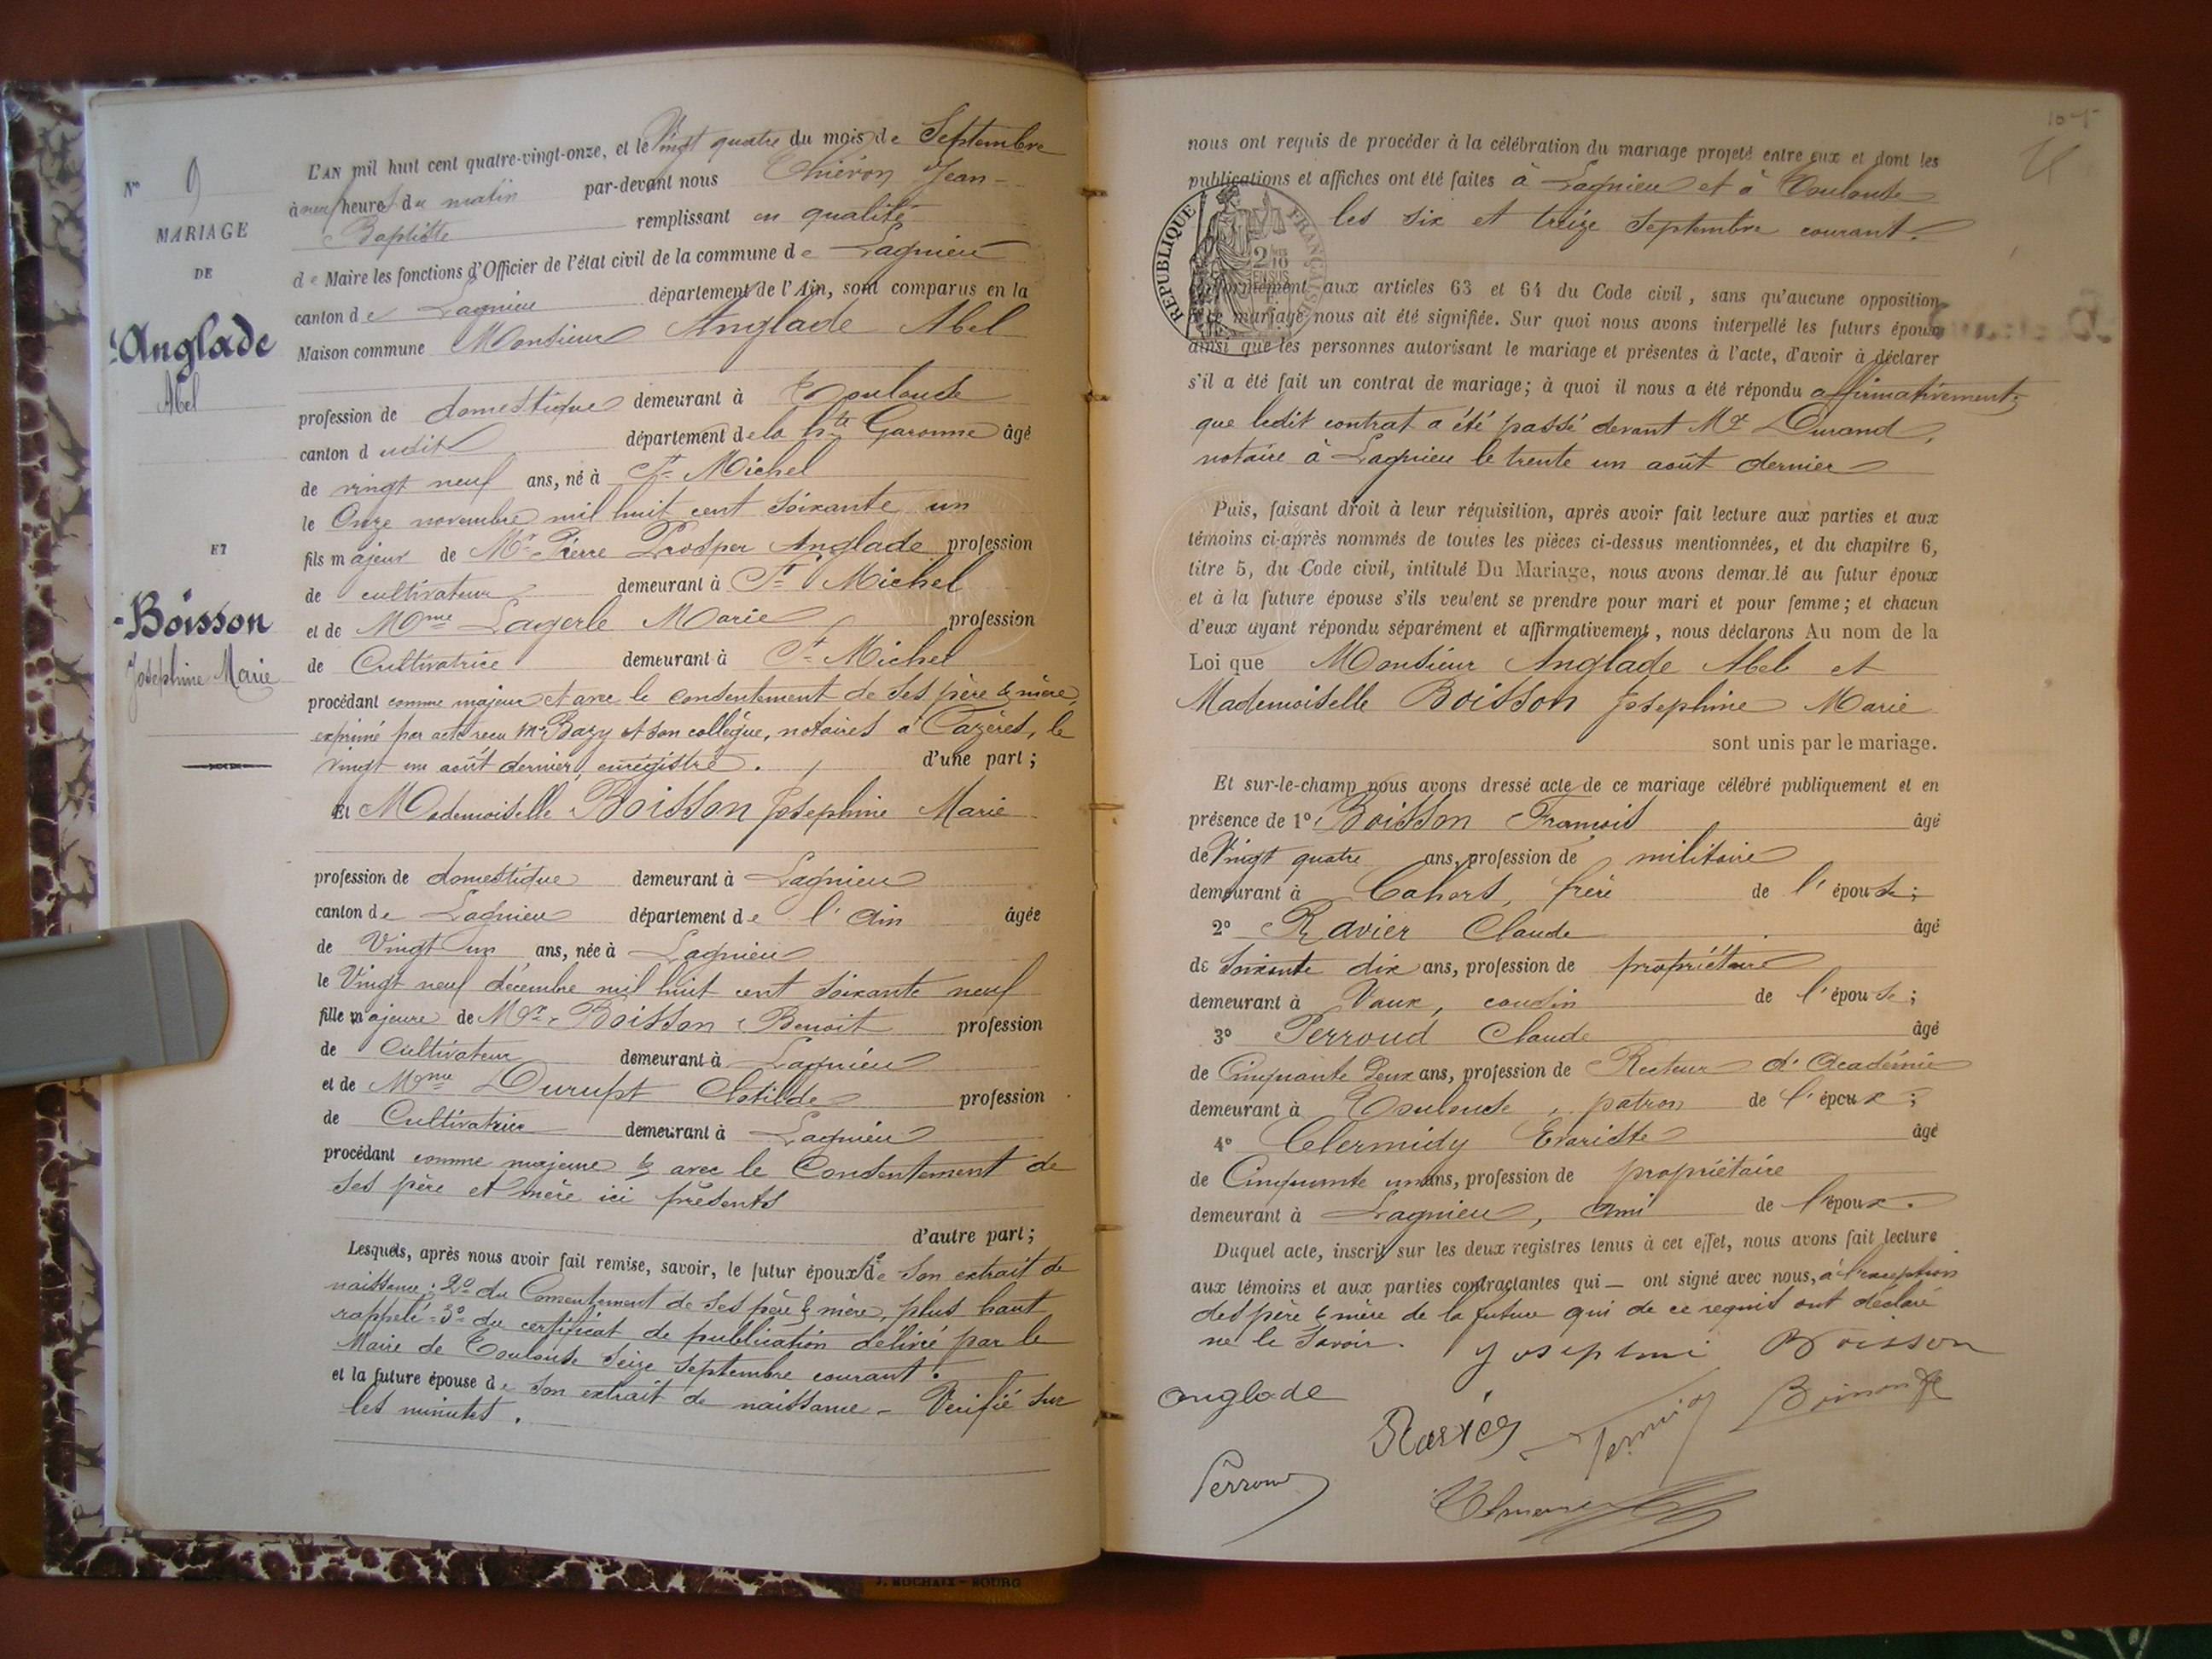 N° 9
MARIAGE
DE
Anglade
Abel
ET
Boisson
Josephine Marie
L'AN mil huit cent quatre-vingt-onze, et le Vingt quatre du mois de Septembre
à neuf heures du matin par-devant nous Thiéron Jean-
Baptiste remplissant en qualité
de Maire les fonctions d'Officier de l'état civil de la commune de Lagnieu
canton de Lagnieu département de l'Ain, sont comparus en la
Maison commune Monsieur Anglade Abel
profession de domestique demeurant à Toulouse
canton dudit département de la hte Garonne âgé
de vingt neuf ans, né à St Michel
le Onze novembre mil huit cent soixante un
fils majeur de Mr Pierre Prosper Anglade profession
de cultivateur demeurant à St Michel
et de Mme Lagerle Marie profession
de Cultivatrice demeurant à St Michel
procédant comme majeur et avec le consentement de ses père & mère,
exprimé par acte recu Me Bazy et son collègue, notaires à Cazères, le
vingt un août dernier, enregistré. d'une part ;
Et Mademoiselle Boisson Josephine Marie
profession de domestique demeurant à Lagnieu
canton de Lagnieu département de l'Ain âgée
de Vingt un ans, née à Lagnieu
le Vingt neuf décembre mil huit cent soixante neuf
fille majeure de Mr Boisson Benoit profession
de Cultivateur demeurant à Lagnieu
et de Mme Durupt Clotilde profession
de Cultivatrice demeurant à Lagnieu
procédant comme majeure & avec le Consentement de
ses père et mère ici présents
d'autre part ;
Lesquels, après nous avoir fait remise, savoir, le futur époux 1° de son extrait de
naissance ; 2° du Consentement de ses père & mère, plus haut
rappelé - 3° du certificat de publication délivré par le
Maire de Toulouse seize septembre courant.
et la future épouse de son extrait de naissance - Vérifié sur
les minutes.
J. ROCHAIX - BOURG
nous ont requis de procéder à la célébration du mariage projeté entre eux et dont les
publications et affiches ont été faites à Lagnieu et à Toulouse
les six et treize Septembre courant.
REPUBLIQUE FRANÇAISE
aux articles 63 et 64 du Code civil, sans qu'aucune opposition
à ce mariage nous ait été signifiée. Sur quoi nous avons interpellé les futurs époux
ainsi que les personnes autorisant le mariage et présentes à l'acte, d'avoir à déclarer
s'il a été fait un contrat de mariage ; à quoi il nous a été répondu affirmativement ;
que ledit contrat a été passé devant Me Durand,
notaire à Lagnieu le trente un août dernier
Puis, faisant droit à leur réquisition, après avoir fait lecture aux parties et aux
témoins ci-après nommés de toutes les pièces ci-dessus mentionnées, et du chapitre 6,
titre 5, du Code civil, intitulé Du Mariage, nous avons demandé au futur époux
et à la future épouse s'ils veulent se prendre pour mari et pour femme ; et chacun
d'eux ayant répondu séparément et affirmativement, nous déclarons Au nom de la
Loi que Monsieur Anglade Abel et
Mademoiselle Boisson Josephine Marie
sont unis par le mariage.
Et sur-le-champ nous avons dressé acte de ce mariage célébré publiquement et en
présence de 1° Boisson François âgé
de Vingt quatre ans, profession de militaire
demeurant à Cahors, frère de l'épouse ;
2° Ravier Claude âgé
de Soixante dix ans, profession de propriétaire
demeurant à Vaux, cousin de l'épouse ;
3° Perroud Claude âgé
de Cinquante deux ans, profession de Recteur d'Académie
demeurant à Toulouse, patron de l'époux ;
4° Clermidy Evariste âgé
de Cinquante un ans, profession de propriétaire
demeurant à Lagnieu, ami de l'époux.
Duquel acte, inscrit sur les deux registres tenus à cet effet, nous avons fait lecture
aux témoins et aux parties contractantes qui — ont signé avec nous, à l'exception
des père & mère de la future qui de ce requis ont déclaré
ne le Savoir. Josephine Boisson
anglade
Ravier
Perroud